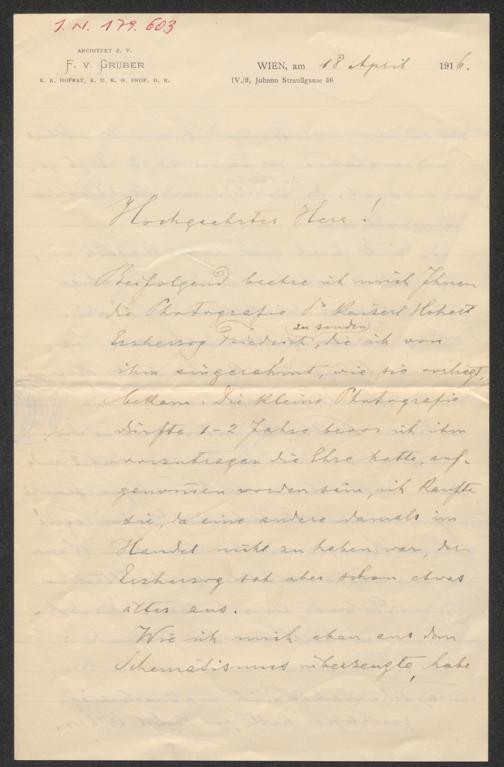 J.N. 179.603
ARCHITEKT Z. V.
F. V. GRUBER
K. K. HOFRAT, K. U. K. O. PROF. D. R.
WIEN, am 18 April 1916.
IV./2, Johann Straußgasse 36
Hochgeehrter Herr!
Beifolgend beehre ich mich Ihnen
die Photografie Sr Kaiserl Hoheit
Erzherzog Friedrich (zu senden), die ich von
ihm eingerahmt, wie sie vorliegt,
bekam. Die kleine Photografie
dürfte 1-2 Jahre bevor ich ihm
vorzutragen die Ehre hatte, auf-
genommen worden sein, ich kaufte
sie, da eine andere damals im
Handel nicht zu haben war, der
Erzherzog sah aber schon etwas
älter aus.
Wie ich mich eben aus dem
Schematismus überzeugte, habe